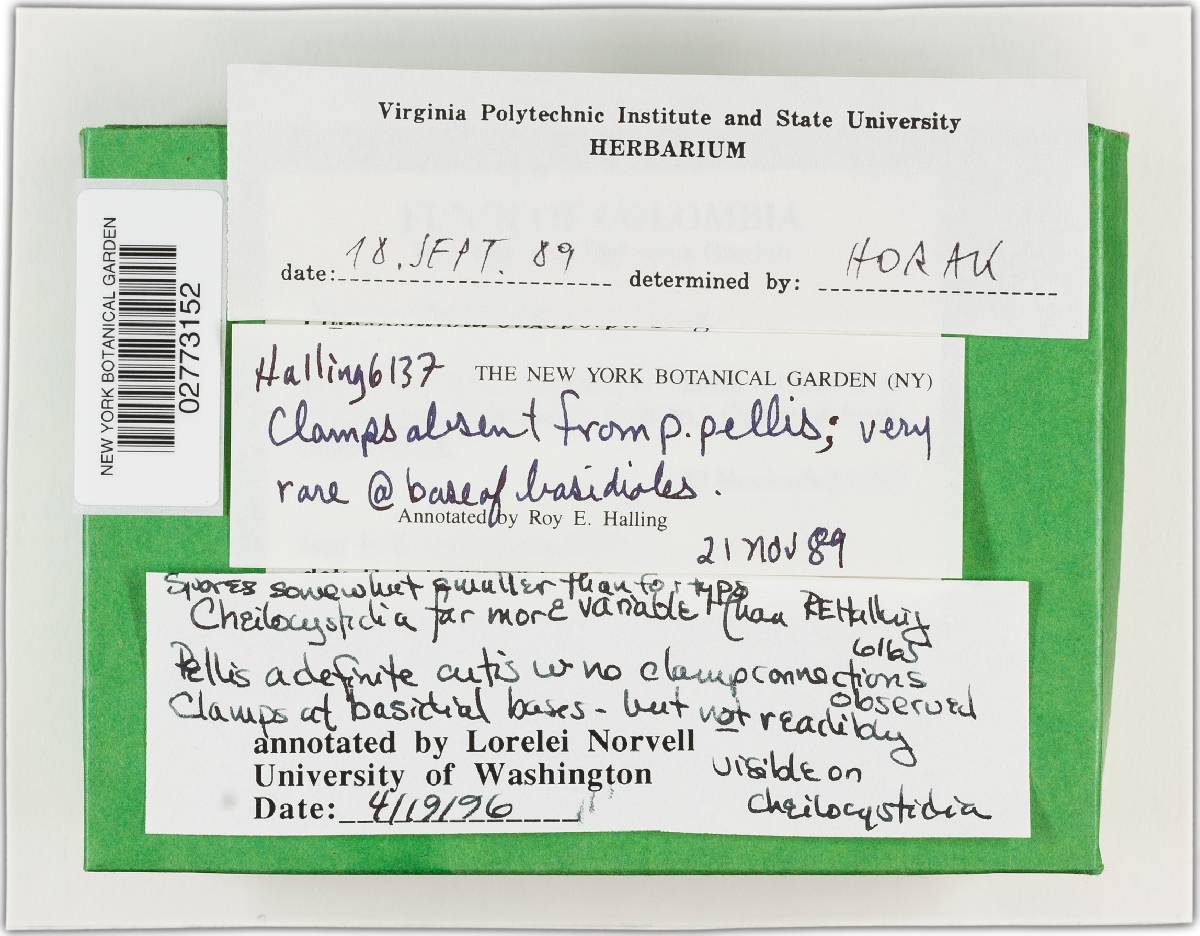 Virginia Polytechnic Institute and State University
HERBARIUM
date: 18. SEPT. 89 determined by: HORAK
NEW YORK BOTANICAL GARDEN
02773152
Halling 6137 THE NEW YORK BOTANICAL GARDEN (NY)
Clamps absent from p. pellis; very
rare @ base of basidioles.
Annotated by Roy E. Halling
21 NOV 89
Spores somewhat smaller than for type
Cheilocystidia far more variable than REHalling
6165
Pellis a definite cutis w no clamp connections
observed
Clamps at basidial bases - but not readibly
visible on
cheilocystidia
annotated by Lorelei Norvell
University of Washington
Date: 4/19/96